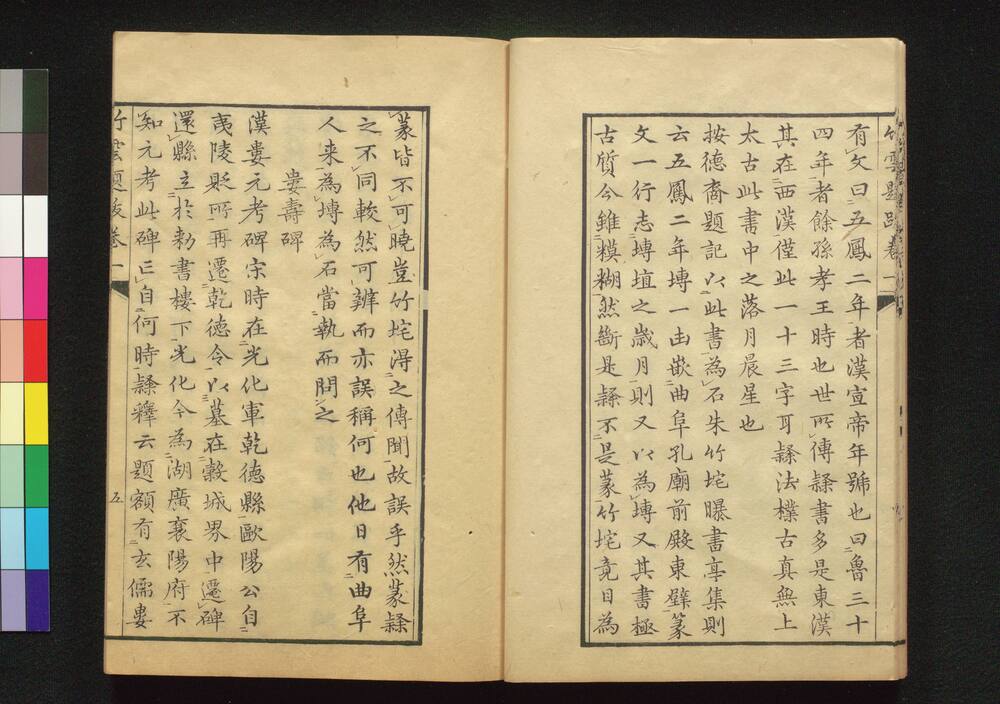 竹雲題跋卷一
有文曰五鳳二年者漢宣帝年號也曰魯三十
四年者餘孫孝王時也世所傳隸書多是東漢
其在西漢僅此一十三字耳隸法樸古真無上
太古此書中之落月晨星也
按德裔題記以此書為石朱竹垞曝書亭集則
云五鳳二年塼一凷嵌曲阜孔廟前殿東壁篆
文一行志塼埴之歲月則又以為塼又其書極
古質今雖糢糊然斷是隸不是篆竹垞竟目為
篆皆不可曉豈竹垞得之傳聞故誤乎然篆隸
之不同較然可辨而亦誤稱何也他日有曲阜
人来為塼為石當執而問之
婁壽碑
漢婁元考碑宋時在光化軍乾德縣歐陽公自
夷陵貶所再遷乾德令以墓在穀城界中遷碑
還縣立於勑書樓下光化今為湖廣襄陽府不
知元考此碑亡自何時隸釋云題額有玄儒婁
竹雲題跋卷一
五